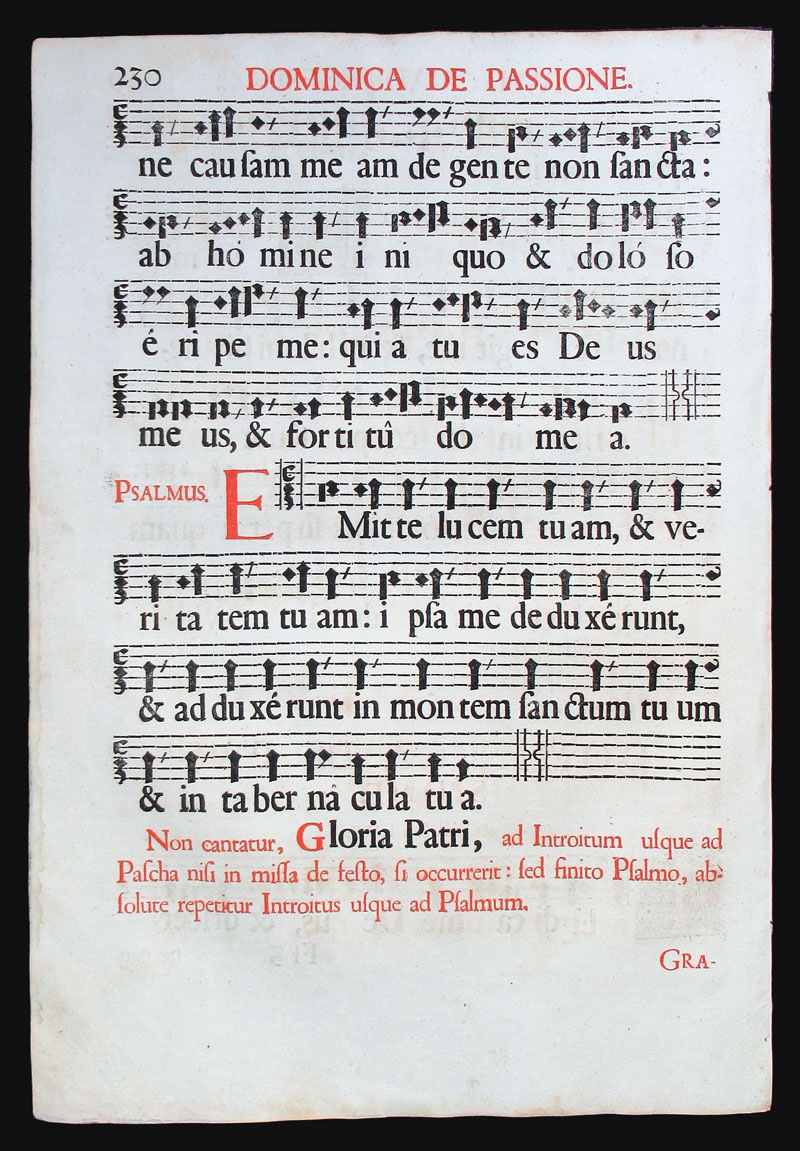 230 DOMINICA DE PASSIONE.
ne cauſam me am de gente non ſancta:
ab hó mine i ni quo & doló ſo
é ri pe me: qui a tu es De us
me us, & for ti tû do me a.
PSALMUS. E Mit te lu cem tu am, & ve-
ri ta tem tu am: i pſa me de du xé runt,
& ad du xé runt in mon tem ſanctum tu um
& in ta ber ná cu la tu a.
Non cantatur, Gloria Patri, ad Introitum uſque ad
Paſcha niſi in miſſa de feſto, ſi occurrerit: ſed finito Pſalmo, ab-
ſolute repetitur Introitus uſque ad Pſalmum.
GRA-